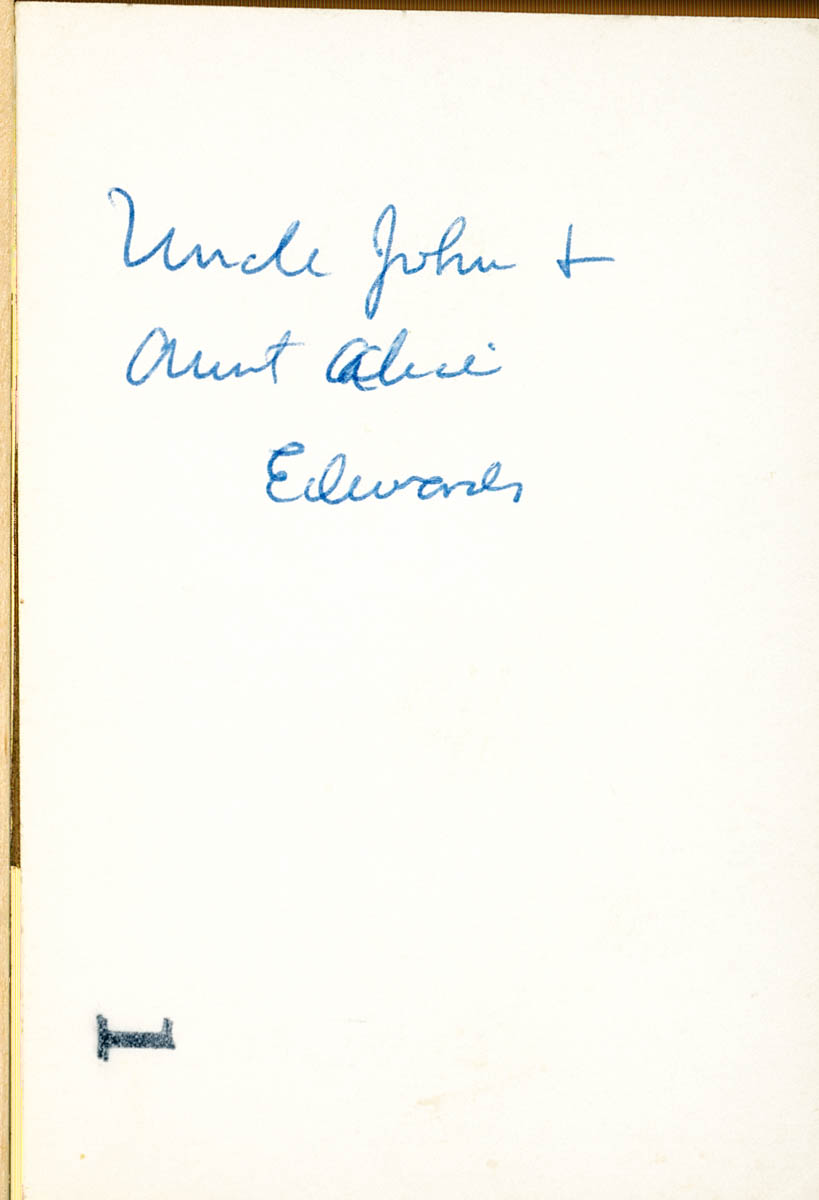 Uncle John +
Aunt Alice
Edwards
1